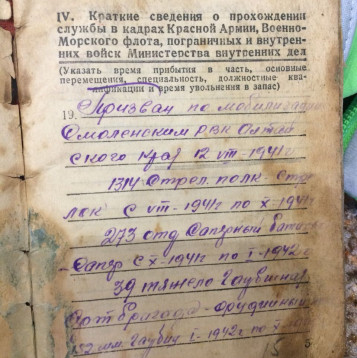 IV. Краткие сведения о прохождении
службы в кадрах Красной Армии, Военно-
Морского флота, пограничных и внутрен-
них войск Министерства внутренних дел
(Указать время прибытия в часть, основные
перемещения, специальность, должностные ква-
лификации и время увольнения в запас)
19. Призван по мобилизации
Смоленским РВК Алтай
ского края 12 VIII-1941г
1314 Стрел. полк - Стре
лок с VIII-1941г по X-1941г
273 отд Саперный бата
-Сапер с X-1941г по I-1942г
39 тяжело Гаубичная
Артбригада - орудийный
152 мм. Гаубиц I-1942г по
5